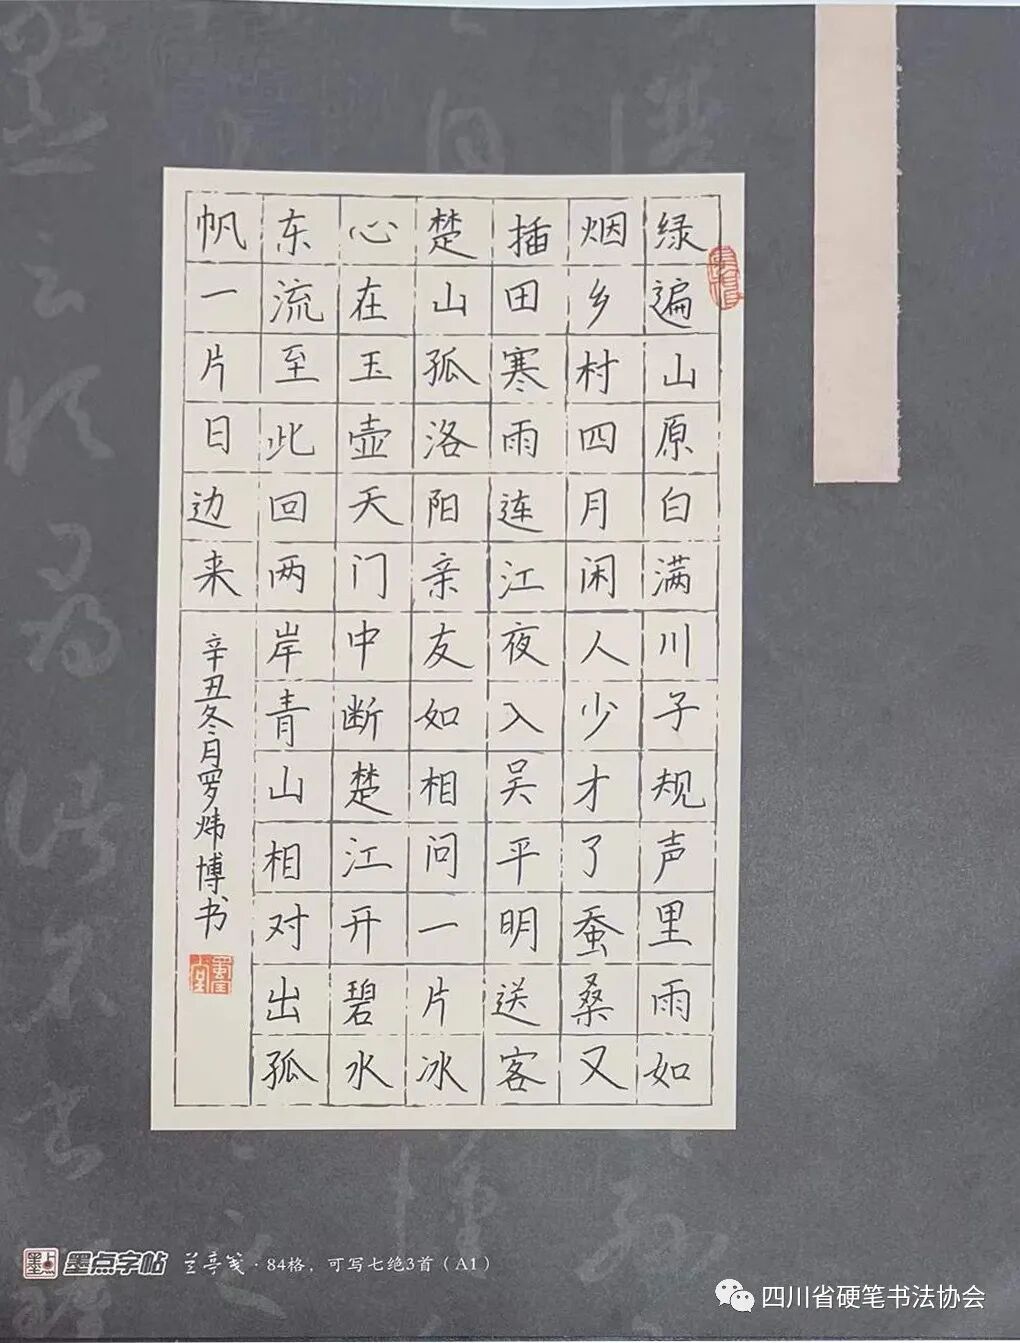 绿遍山原白满川子规声里雨如
烟乡村四月闲人少才了蚕桑又
插田寒雨连江夜入吴平明送客
楚山孤洛阳亲友如相问一片冰
心在玉壶天门中断楚江开碧水
东流至此回两岸青山相对出孤
帆一片日边来
辛丑冬月罗炜博书
墨点字帖 兰亭笺·84格，可写七绝3首（A1）
四川省硬笔书法协会